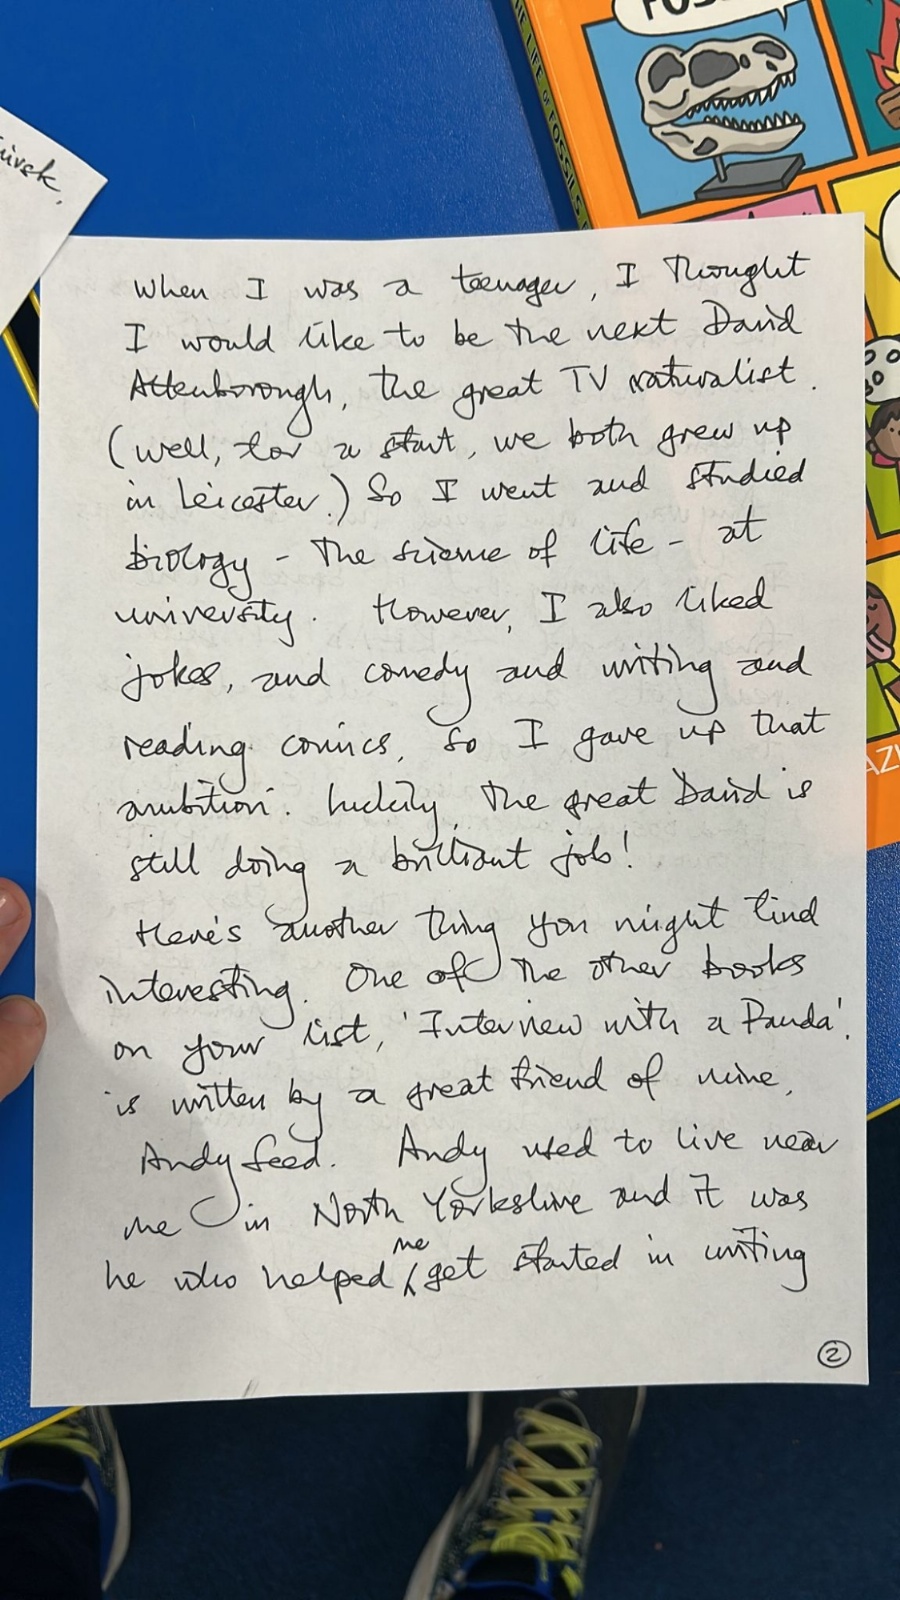 FOSS
THE LIFE OF FOSSILS
When I was a teenager, I thought
I would like to be the next David
Attenborough, the great TV naturalist.
(Well, for a start, we both grew up
in Leicester.) So I went and studied
biology - the science of life - at
university. However, I also liked
jokes, and comedy and writing and
reading comics, so I gave up that
ambition. Luckily, the great David is
still doing a brilliant job!
Here's another thing you might find
interesting. One of the other books
on your list, 'Interview with a Panda',
is written by a great friend of mine,
Andy Seed. Andy used to live near
me in North Yorkshire and it was
he who helped me get started in writing
2